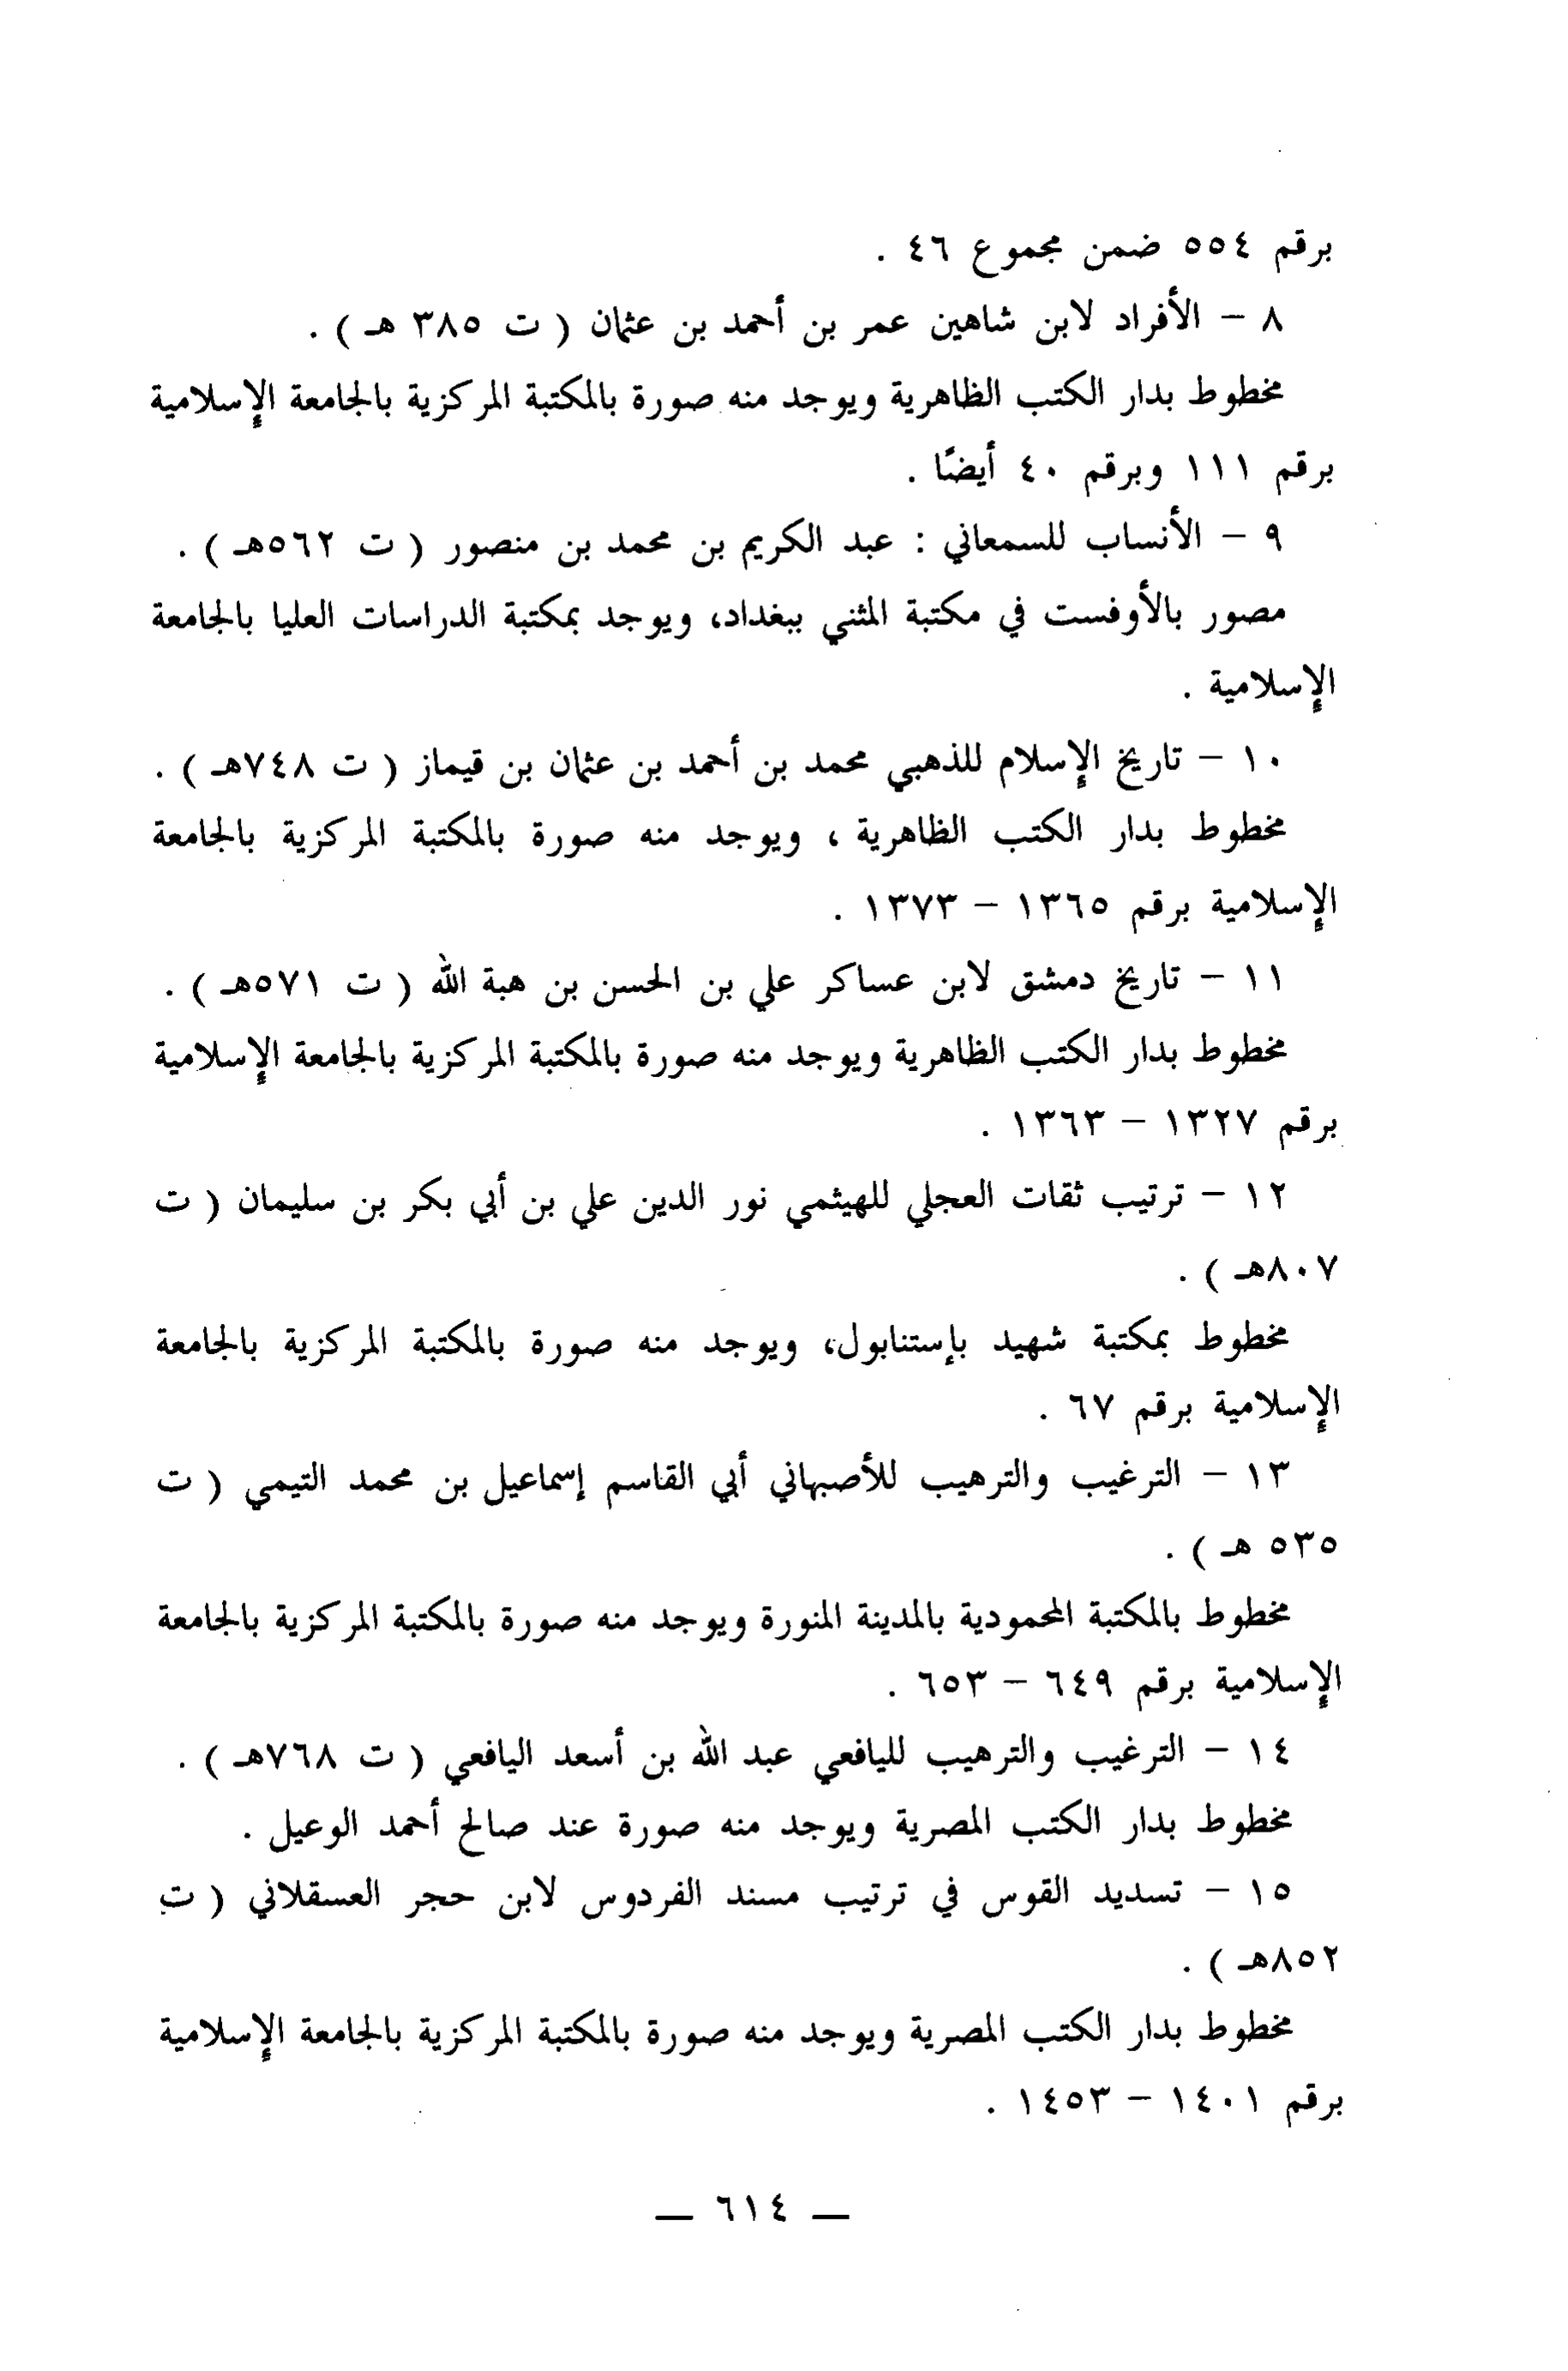 برقم ٥٥٤ ضمن مجموع ٤٦ .
٨ – الأفراد لابن شاهين عمر بن أحمد بن عثمان ( ت ٣٨٥ هـ ) .
مخطوط بدار الكتب الظاهرية ويوجد منه صورة بالمكتبة المركزية بالجامعة الإسلامية
برقم ١١١ وبرقم ٤٠ أيضًا .
٩ – الأنساب للسمعاني : عبد الكريم بن محمد بن منصور ( ت ٥٦٢هـ ) .
مصور بالأوفست في مكتبة المثني ببغداد، ويوجد بمكتبة الدراسات العليا بالجامعة
الإسلامية .
١٠ – تاريخ الإسلام للذهبي محمد بن أحمد بن عثمان بن قيماز ( ت ٧٤٨هـ ) .
مخطوط بدار الكتب الظاهرية ، ويوجد منه صورة بالمكتبة المركزية بالجامعة
الإسلامية برقم ١٣٦٥ – ١٣٧٣ .
١١ – تاريخ دمشق لابن عساكر علي بن الحسن بن هبة الله ( ت ٥٧١هـ ) .
مخطوط بدار الكتب الظاهرية ويوجد منه صورة بالمكتبة المركزية بالجامعة الإسلامية
برقم ١٣٢٧ – ١٣٦٣ .
١٢ – ترتيب ثقات العجلي للهيثمي نور الدين علي بن أبي بكر بن سليمان ( ت
٨٠٧هـ ) .
مخطوط بمكتبة شهيد بإستنابول، ويوجد منه صورة بالمكتبة المركزية بالجامعة
الإسلامية برقم ٦٧ .
١٣ – الترغيب والترهيب للأصبهاني أبي القاسم إسماعيل بن محمد التيمي ( ت
٥٣٥ هـ ) .
مخطوط بالمكتبة المحمودية بالمدينة المنورة ويوجد منه صورة بالمكتبة المركزية بالجامعة
الإسلامية برقم ٦٤٩ – ٦٥٣ .
١٤ – الترغيب والترهيب لليافعي عبد الله بن أسعد اليافعي ( ت ٧٦٨هـ ) .
مخطوط بدار الكتب المصرية ويوجد منه صورة عند صالح أحمد الوعيل .
١٥ – تسديد القوس في ترتيب مسند الفردوس لابن حجر العسقلاني ( ت
٨٥٢هـ ) .
مخطوط بدار الكتب المصرية ويوجد منه صورة بالمكتبة المركزية بالجامعة الإسلامية
برقم ١٤٠١ – ١٤٥٣ .
— ٦١٤ —